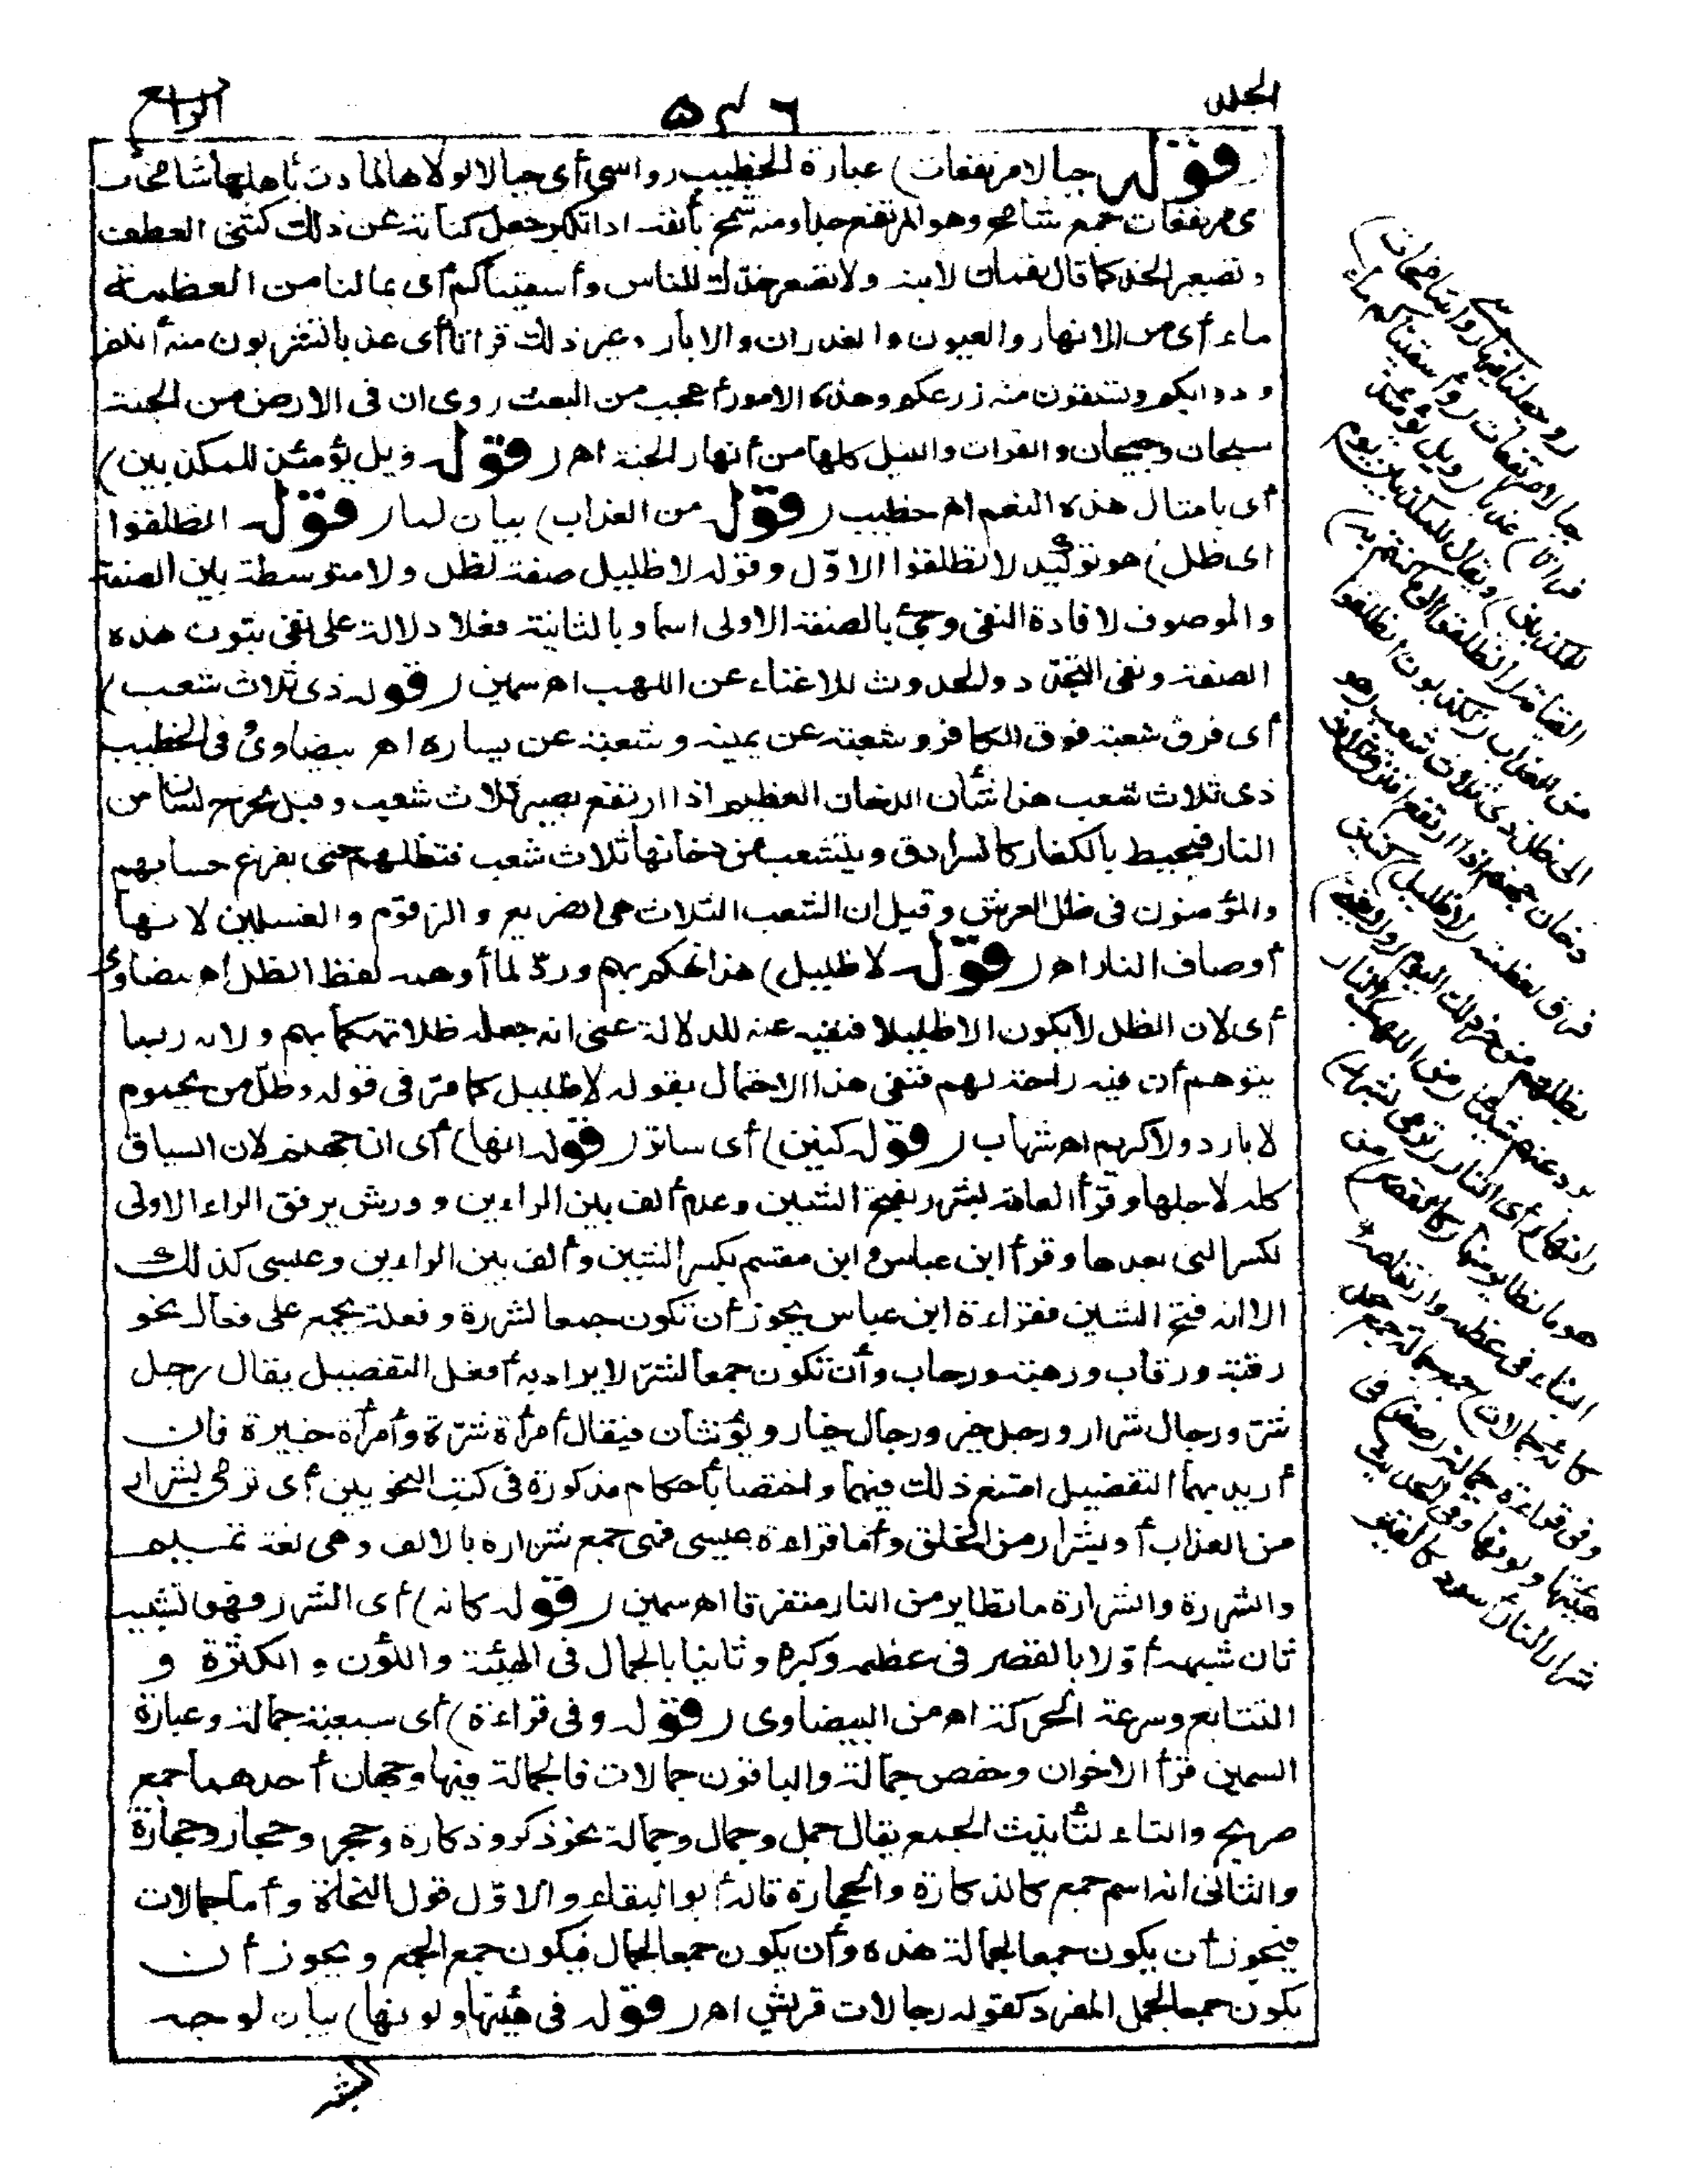 الجلد
٥٤٦
الرابع
(قوله جبالا مرتفعات) عبارة الخطيب رواسى أى جبالا لولاها لمادت بأهلها شامخات
أى مرتفعات جمع شامخ وهو المرتفع جدا ومنه شمخ بأنفه اذا تكبر جعل كناية عن ذلك كثنى العطف
وتصعير الخد كما قال لقمان لابنه ولا تصعر خدك للناس وأسقيناكم أى بما لنا من العظمة
ماء أى من الانهار والعيون والغدران والآبار وغير ذلك فراتا أى عذبا تشربون منه أنتم
ودوابكم وتسقون منه زرعكم وهذه الامور أعجب من البعث روى ان فى الارض من الجنة
سيحان وجيحان والفرات والنيل كلها من أنهار الجنة اه (قوله ويل يومئذ للمكذبين)
أى بامثال هذه النعم اه خطيب (قوله من العذاب) بيان لما (قوله انطلقوا
الى ظل) هو توكيد لانطلقوا الاوّل وقوله لا ظليل صفة لظل ولا متوسطة بين الصفة
والموصوف لافادة النفى وجىء بالصفة الاولى اسما وبالثانية فعلا دلالة على نفى ثبوت هذه
الصفة ونفى التجدّد والحدوث للاغناء عن اللهب اه سمين (قوله ذى ثلاث شعب)
أى فرق شعبة فوق الكافر وشعبة عن يمينه وشعبة عن يساره اه بيضاوى وفى الخطيب
ذى ثلاث شعب هذا شأن الدخان العظيم اذا ارتفع يصير ثلاث شعب وقيل يخرج لسان من
النار فيحيط بالكفار كالسرادق ويتشعب من دخانها ثلاث شعب فتظلهم حتى يفرغ حسابهم
والمؤمنون فى ظل العرش وقيل ان الشعب الثلاث هى الضريع والزقوم والغسلين لانها
أوصاف النار اه (قوله لا ظليل) هذا تهكم بهم وردّ لما أوهمه لفظ الظل اه بيضاوى
أى لان الظل لا يكون الا ظليلا فنفيه عنه للدلالة على انه جعله ظلا تهكما بهم ولانه ربما
يتوهم أن فيه راحة لهم فنفى هذا الاحتمال بقوله لا ظليل كما مرّ فى قوله وظلّ من يحموم
لا بارد ولا كريم اه شهاب (قوله كنين) أى ساتر (قوله انها) أى ان جهنم لان السياق
كله لاجلها وقرأ العامة بشرر بفتح الشين وعدم ألف بين الراءين وورش يرقق الراء الاولى
لكسر التى بعدها وقرأ ابن عباس وابن مقسم بكسر الشين وألف بين الراءين وعيسى كذلك
الا انه فتح الشين فقراءة ابن عباس يجوز أن تكون جمعا لشررة وفعلة تجمع على فعال نحو
رقبة ورقاب ورحبة ورحاب وأن تكون جمعا لشرّ لا يراد به أفعل التفضيل يقال رجل
شرّ ورجال شرار ورجل خير ورجال خيار ويؤنثان فيقال امرأة شرّة وامرأة خيرة فان
أريد بهما التفضيل امتنع ذلك فيهما واختصا بأحكام مذكورة فى كتب النحويين أى ترمى بشرار
من العذاب أو بشرار من الخلق وأما قراءة عيسى فهى جمع شرارة بالالف وهى لغة تميم
والشررة والشرارة ما تطاير من النار متفرقا اه سمين (قوله كانه) أى الشرر فهو تشبيه
ثان شبهه أوّلا بالقصر فى عظمه وكبره وثانيا بالجمال فى الهيئة واللون والكثرة و
التتابع وسرعة الحركة اه من البيضاوى (قوله وفى قراءة) أى سبعية جمالة وعبارة
السمين قرأ الاخوان وحفص جمالة والباقون جمالات فالجمالة فيها وجهان أحدهما جمع
صريح والتاء لتأنيث الجمع يقال جمل وجمال وجمالة نحو ذكر وذكارة وحجر وحجار وحجارة
والثانى انه اسم جمع كالذكارة والحجارة قاله أبو البقاء والاوّل قول النحاة وأما جمالات
فيجوز أن يكون جمعا لجمالة هذه وأن يكون جمعا لجمال فيكون جمع الجمع ويجوز أن
يكون جمعا لجمل المفرد كقوله رجالات قريش اه (قوله فى هيئتها ولونها) بيان لوجه
(وجعلنا فيها رواسى شامخات)
جبالا مرتفعات (وأسقيناكم ماء
فراتا) عذبا (ويل يومئذ
للمكذبين) ويقال للمكذبين يوم
القيامة (انطلقوا الى ما كنتم به)
من العذاب (تكذبون انطلقوا
الى ظل ذى ثلاث شعب) هو
دخان جهنم اذا ارتفع افترق ثلاث
فرق لعظمته (لا ظليل) كنين
يظلهم من حر ذلك اليوم (ولا يغنى)
يرد عنهم شيئا (من اللهب) النار
(انها) أى النار (ترمى بشرر)
هو ما تطاير منها (كالقصر) من
البناء فى عظمه وارتفاعه
(كانه جمالات) جمع جمالة جمع جمل
وفى قراءة جمالة (صفر) فى
هيئتها ولونها وفى الحديث
شرار النار أسود كالقير